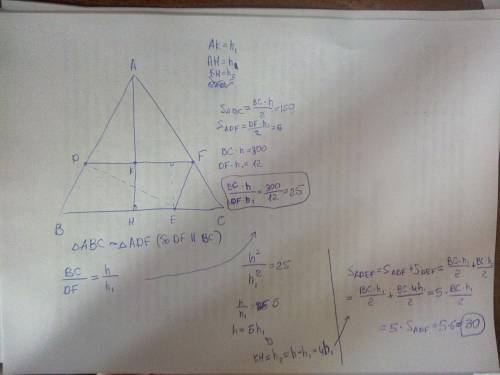 AK=h₁
AH=h
KH=h₂
A
S_ABC = BC·h/2 = 150
S_ADF = DF·h₁/2 = 6
BC·h=300
DF·h₁=12
BC·h/DF·h₁ = 300/12 = 25
D K F
B H E C
△ABC ~ △ADF (so DF || BC)
BC/DF = h/h₁
h²/h₁² = 25
h/h₁ = 5
h=5h₁
KH=h₂=h-h₁=4h₁
S_ADEF = S_ADF + S_DEF = BC·h₁/2 +
= BC·h₁/2 + BC·4h₁/2 = 5· BC·h₁/2
= 5·S_ADF = 5·6 = 30